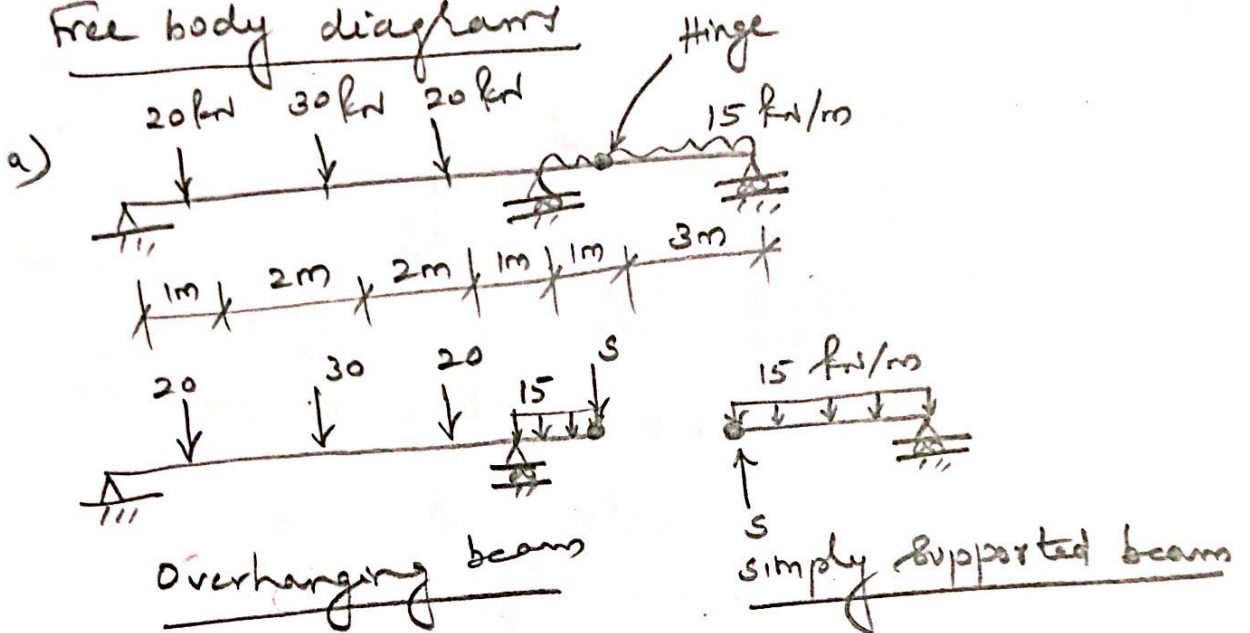 Free body diagrams
Hinge
20 kN 30 kN 20 kN
15 kN/m
a)
1m 2m 2m 1m 1m 3m
20 30 20 15 S
15 kN/m
S
Overhanging beam
simply supported beam